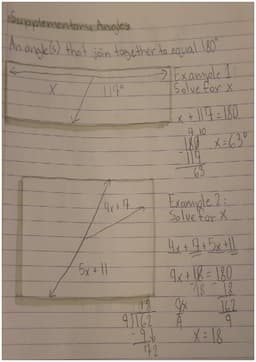 Supplementary Angles
An angle(s) that join together to equal 180°
x 117°
Example 1
Solve for x
x + 117 = 180
180 x = 63°
-117
63
Example 2:
Solve for x
4x + 7
5x + 11
4x + 7 + 5x + 11
9x + 18 = 180
-18 18
9x 162
9 9
x = 18
9 162
72